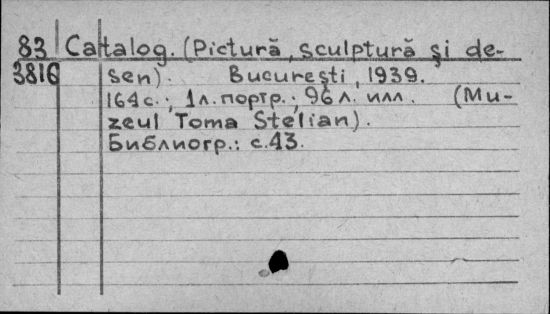 83 Catalog. (Pictură, sculptură şi de-
3816 sen). Bucureşti, 1939.
164 с.; 1 л. портр.; 96 л. илл. (Mu-
zeul Toma Stelian).
Библиогр.: с. 43.